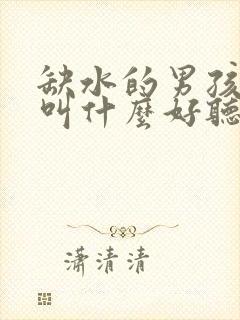 缺水的男孩
叫什麼好聽
潇清清